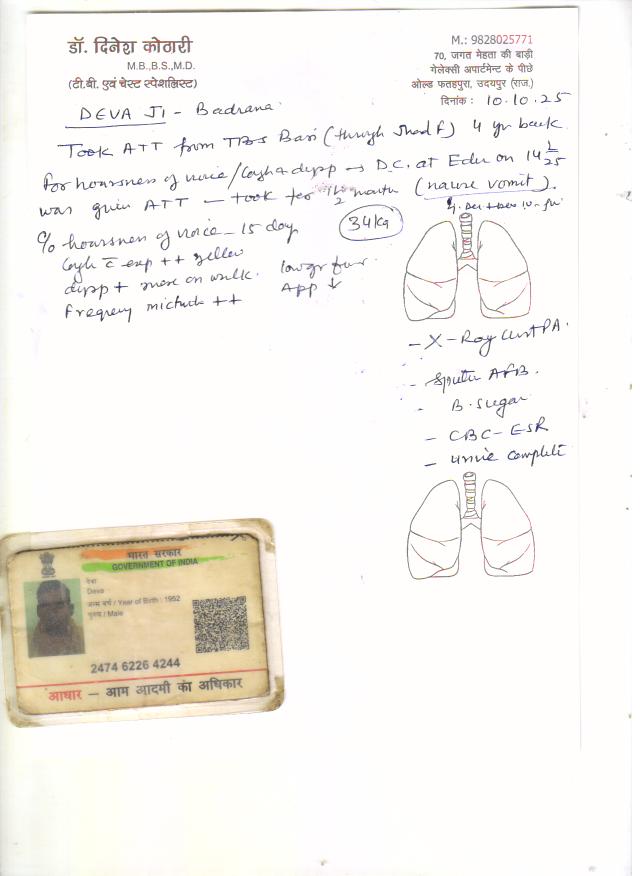 डॉ. दिनेश कोठारी
M.B.,B.S.,M.D.
(टी.बी. एवं चेस्ट स्पेशलिस्ट)
M.: 9828025771
70, जगत मेहता की बाड़ी
गेलेक्सी अपार्टमेन्ट के पीछे
ओल्ड फतहपुरा, उदयपुर (राज.)
दिनांक : 10.10.25
DEVA JI - Badrana
Took ATT from TBS Bari (through Shad F) 4 yr back
For hoarsness of voice/Cough & dysp → D.C. at Edu on 14
was given ATT - took for 1½ month (nause vomit).
c/o hoarsness of voice - 15 day
34 Kg
Cough c̄ exp ++ yellow
dysp + more on walk.
low gr fever
App ↓
Frequency mictur ++
- X-Ray Chest PA.
- Sputum AFB.
- B. Sugar
- CBC - ESR
- Urine Complete
भारत सरकार
GOVERNMENT OF INDIA
देवा
Deva
जन्म वर्ष / Year of Birth : 1952
पुरुष / Male
2474 6226 4244
आधार — आम आदमी का अधिकार